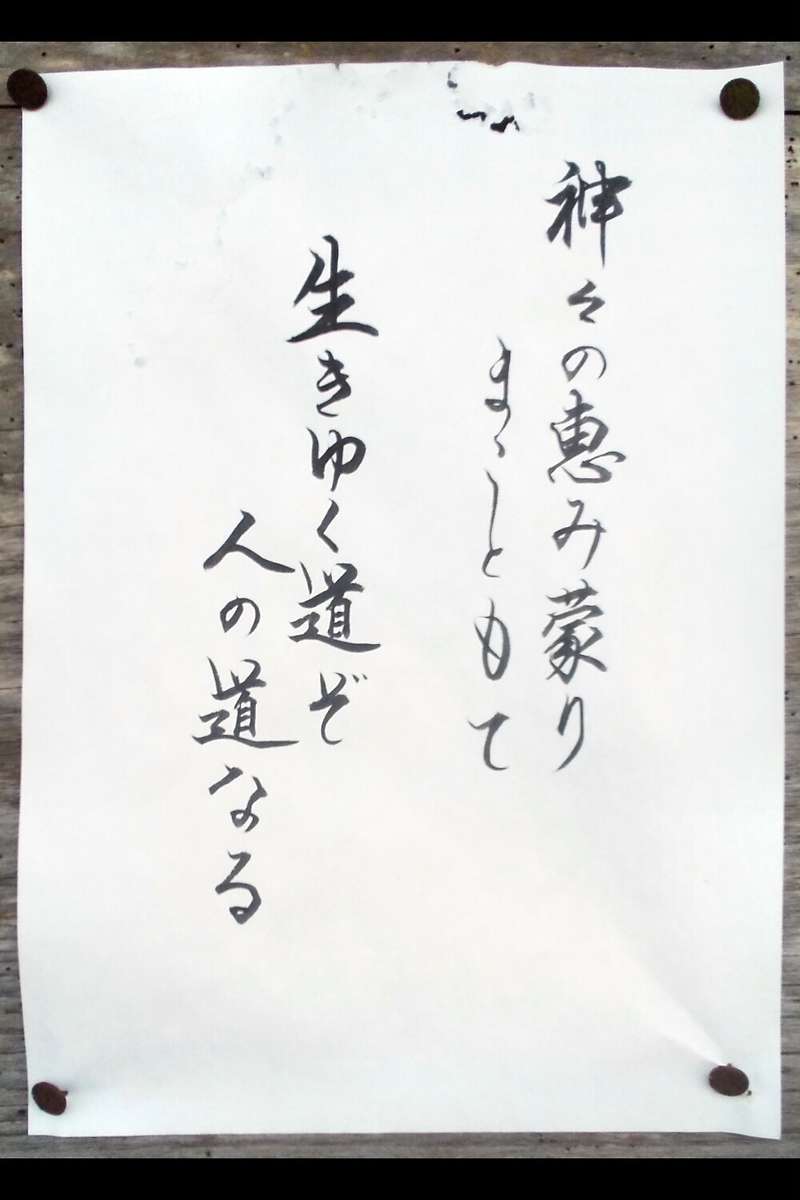 神々の恵み蒙り
まゝしともて
生きゆく道ぞ
人の道なる